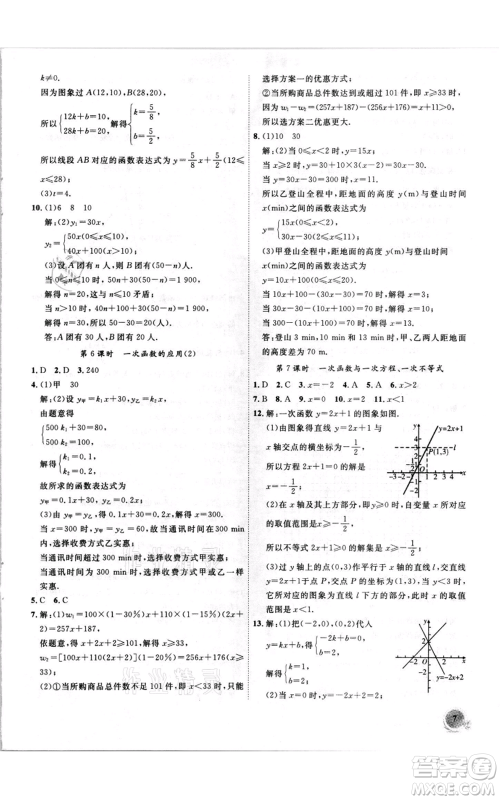 k≠0.
因为图象过 A(12,10),B(28,20),
所以{12k+b=10, 28k+b=20, 解得{k=5/8, b=5/2,
所以线段 AB 对应的函数表达式为 y=5/8x+5/2(12≤
x≤28).
(3)t=4.
10. (1)6 8 10
解:(2)y₁=30x,
y₂={50x(0≤x≤10) 40x+100(x>10).
(3)设 A 团有 n 人,则 B 团有(50-n)人.
当 0≤n≤10 时,50n+30(50-n)=1 900,
解得 n=20,这与 n≤10 矛盾.
当 n>10 时,40n+100+30(50-n)=1 900,
解得 n=30,则 50-n=50-30=20.
答:A 团有 30 人,B 团有 20 人.
第 6 课时 一次函数的应用(2)
1. D 2. D 3. 240
4. (1)甲 30
解:(2)设 y甲=k₁x+30,y乙=k₂x.
由题意得
{500 k₁+30=80, 500 k₂=100,
解得{k₁=0.1, k₂=0.2.
故所求的函数关系式为
y甲=0.1x+30,y乙=0.2x.
(3)由 y甲=y乙,得 0.1x+30=0.2x,解得 x=300.
当 x=300 时,y甲=y乙,故当通讯时间在 300 min
以内时,收费方式乙实惠;
当通话时间超过 300 min 时,收费方式甲实惠;
当通话时间等于 300 min 时,选择收费方式甲或乙一
样实惠.
5. C 6. D
7. 解:(1)w₁=10x(1-10%)+30(x+2)(1-20%)+
220(2x-10)=257x+187.
依题意,得 x+2x+2≥101,解得 x≥33.
w₂=[10x+30(x+2)+220(2x-10)](1-20%)
(2)①当所购商品总件数不足 101 件,即 x<33 时,只能
选择方案一的优惠方式;
②当所购商品总件数超过 101 件,即 x≥33 时,
因为 w₁-w₂=(257x+187)-(256x+187)=x>0,
所以选方案二优惠更大.
8. (1)10 30
解:(2)当 0≤x<2 时,y=15x;
当 x≥2 时,y=30+10×3(x-2)=30x-30.
当 y=30x-30=300 时,x=11.
所以乙登山全程中,距地面的高度 y(m)与登山时间
x(min)之间的函数表达式为
y={15x(0≤x<2), 30x-30(2≤x≤11).
(3)甲登山全程中,距地面的高度 y(m)与登山时间
x(min)之间的函数表达式为
y=10x+100(0≤x≤20).
当 10x+100-(30x-30)=70 时,解得 x=3;
当 30x-30-(10x+100)=70 时,解得 x=10;
当 300-(10x+100)=70 时,解得 x=13.
答:登山 3 min、10 min 或 13 min 时,甲、乙两人距地面
的高度差为 70 m.
第 7 课时 一次函数与一次方程、一次不等式
1. D 2. C 3. x=-2 4. x=2 5. A 6. x>3
7. B 8. A 9. x<4 10. x=2 11. x>3
12. 解:一次函数 y=2x+1 的图象如图.
(1)由图可知:直线 y=2x+1 与
x 轴交点的横坐标为 -1/2,
所以方程 2x+1=0 的解为
x=-1/2;
(2)在 x 轴及其上方,自变量 x 所对应
的取值范围是 x≥-1/2,
所以不等式 2x+1≥0 的解集为 x≥-1/2;
(3)过(0,3)作平行于 x 轴的直线 l,直线 l
及其下方的图象所对应的自变量 x 的取值
范围是 x≤1.
y
y=2x+1
P(1,3)
l
O
x
13. 解:(1)把(-2,0),(0,2)代入
y=kx+b,得{-2k+b=0, b=2,
解得{k=1, b=2.
(2)当 x=0 时,y=1;当 y=0
y
O
x
7